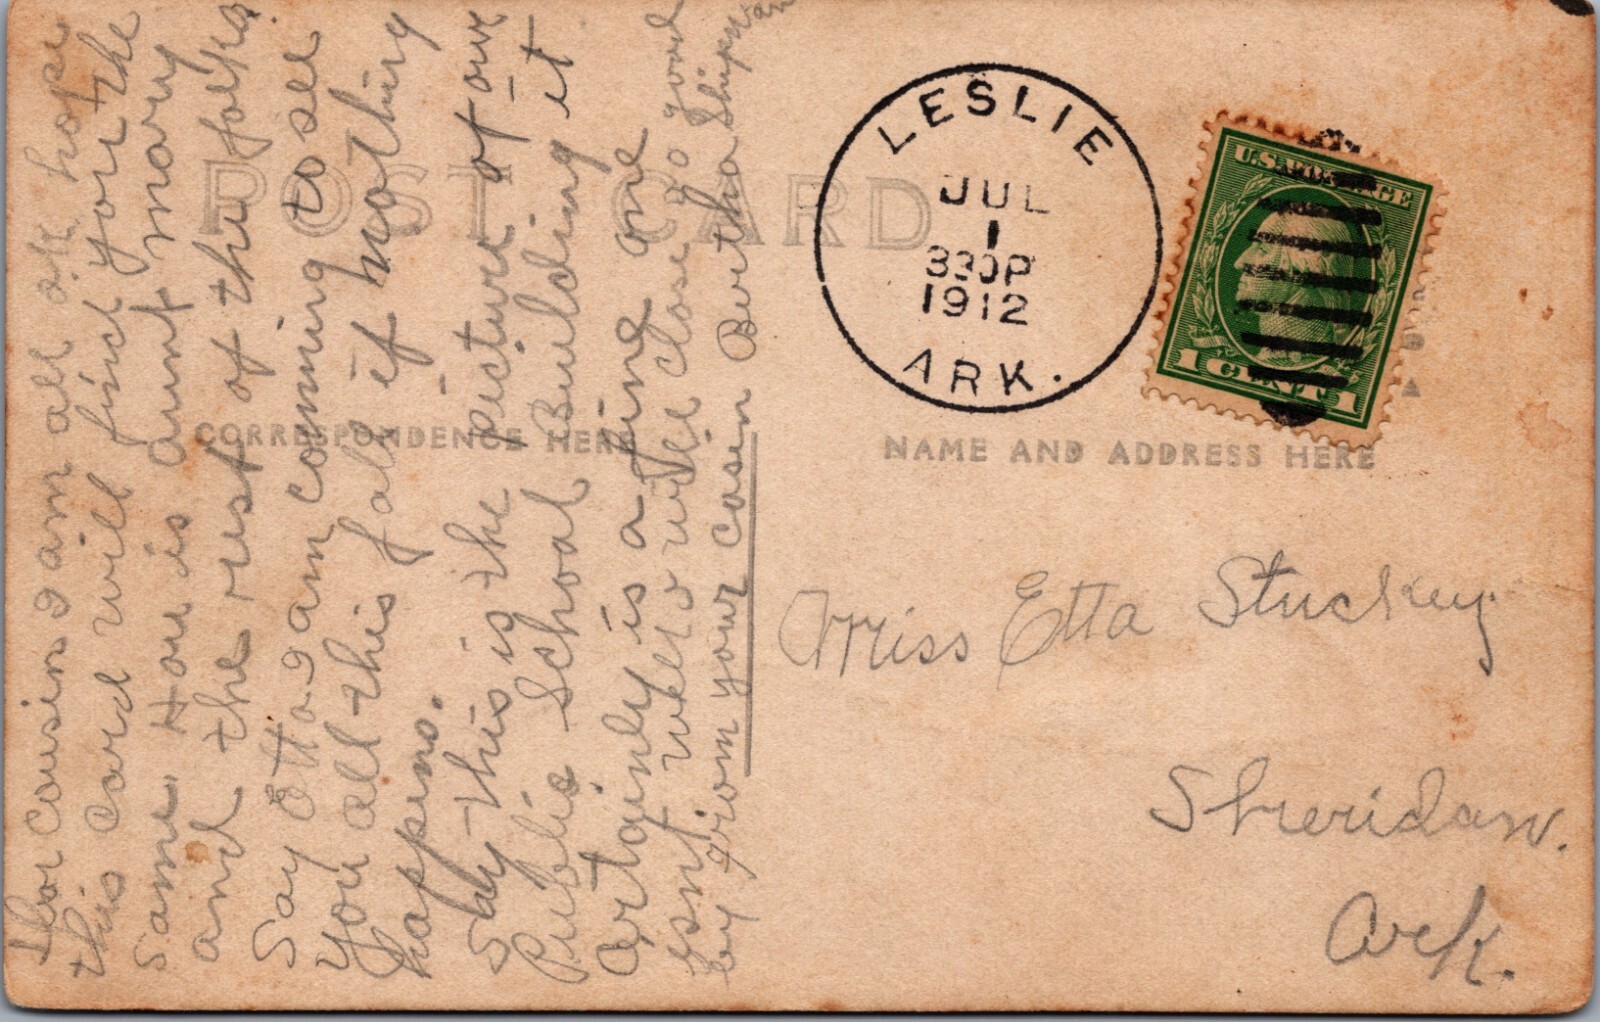 POST CARD
CORRESPONDENCE HERE
NAME AND ADDRESS HERE
LESLIE
JUL
1
330P
1912
ARK.
U.S. POSTAGE
1 CENT 1
Dear cousin I am all ok hope
this card will find you the
same How is aunt mary
and the rest of the folks.
Say Etta I am coming to see
you all this fall if nothing
happens.
Say this is the picture of our
Public School Building it
certainly is a fine one
isnt well will close go good
by from your cosin Bertha Shipman
Miss Etta Stuckey
Sheridan.
Ark.